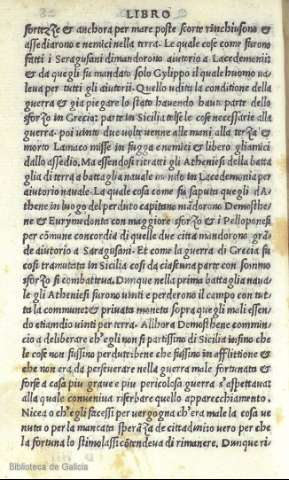 LIBRO
fortezze & anchora per mare poste scorte rinchiusono &
assediarono e nemici nella terra. Le quale cose come furono
fatti i Seragusani dimandorono aiutorio a Lacedemonii:
& da quegli fu mandato solo Gylippo il quale huomo ua
leua per tutti gli aiutorii. Quello udita la conditione della
guerra & gia piegare lo stato hauendo hauti parte dello
sforzo in Grecia: parte in Sicilia tolse le cose necessarie alla
guerra. poi uinto due uolte uenne alle mani alla terza &
morto Lamaco misse in fugga e nemici & libero gliamici
dallo assedio. Ma essendosi ritratti gli Atheniesi della batta
glia di terra a battaglia nauale mando in Lacedemonia per
aiutorio nauale. La qual cosa come fu saputa quegli d'A
thene in luogo del perduto capitano mandorono Demosthe
ne & Eurymedonta con maggiore sforzo & i Pelloponesi
per commune concordia di quelle due citta mandorono gran
de aiutorio a Saragusani. Et come la guerra di Grecia fu
cosi tramutata in Sicilia cosi da ciascuna parte con sommo
sforzo si combattua. Dunque nella prima battaglia naua
le gli Atheniesi furono uinti e perderono il campo con tut
ta la commune & priuata moneta sopra quegli mali essen
do etiamdio uinti per terra. Allhora Demosthene commin
cio a deliberare ch'egli non si partissino di Sicilia insino che
le cose non fussino perdute: bene che fussino in afflittione &
che non era da perseuerare nella guerra male fortunata &
forse a casa piu graue e piu pericolosa guerra s'aspettaua:
alla quale conueniua riserbare quello apparecchiamento.
Nicea o ch'egli facessi per uergogna ch'era male la cosa ue
nuta o per la mancata speranza de cittadini o uero per che
la fortuna lo stimolassi contendeua di rimanere. Dunque ri
Biblioteca de Galicia